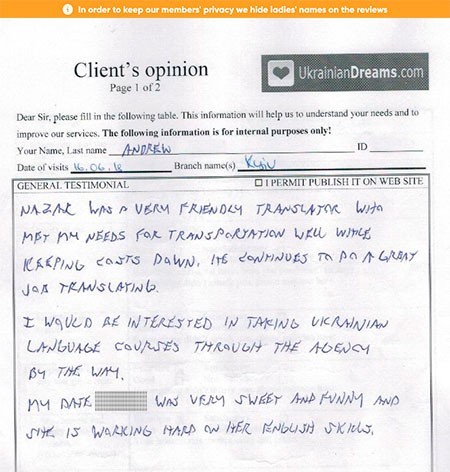 In order to keep our members' privacy we hide ladies' names on the reviews
Client's opinion
Page 1 of 2
UkrainianDreams.com
Dear Sir, please fill in the following table. This information will help us to understand your needs and to
improve our services. The following information is for internal purposes only!
Your Name, Last name ANDREW ID
Date of visits 16.06.18 Branch name(s) Kyiv
GENERAL TESTIMONIAL ☐ I PERMIT PUBLISH IT ON WEB SITE
NAZAR WAS A VERY FRIENDLY TRANSLATOR WHO
MET MY NEEDS FOR TRANSPORTATION WELL WHILE
KEEPING COSTS DOWN. HE CONTINUES TO DO A GREAT
JOB TRANSLATING.
I WOULD BE INTERESTED IN TAKING UKRAINIAN
LANGUAGE COURSES THROUGH THE AGENCY
BY THE WAY.
MY DATE WAS VERY SWEET AND FUNNY AND
SHE IS WORKING HARD ON HER ENGLISH SKILLS.